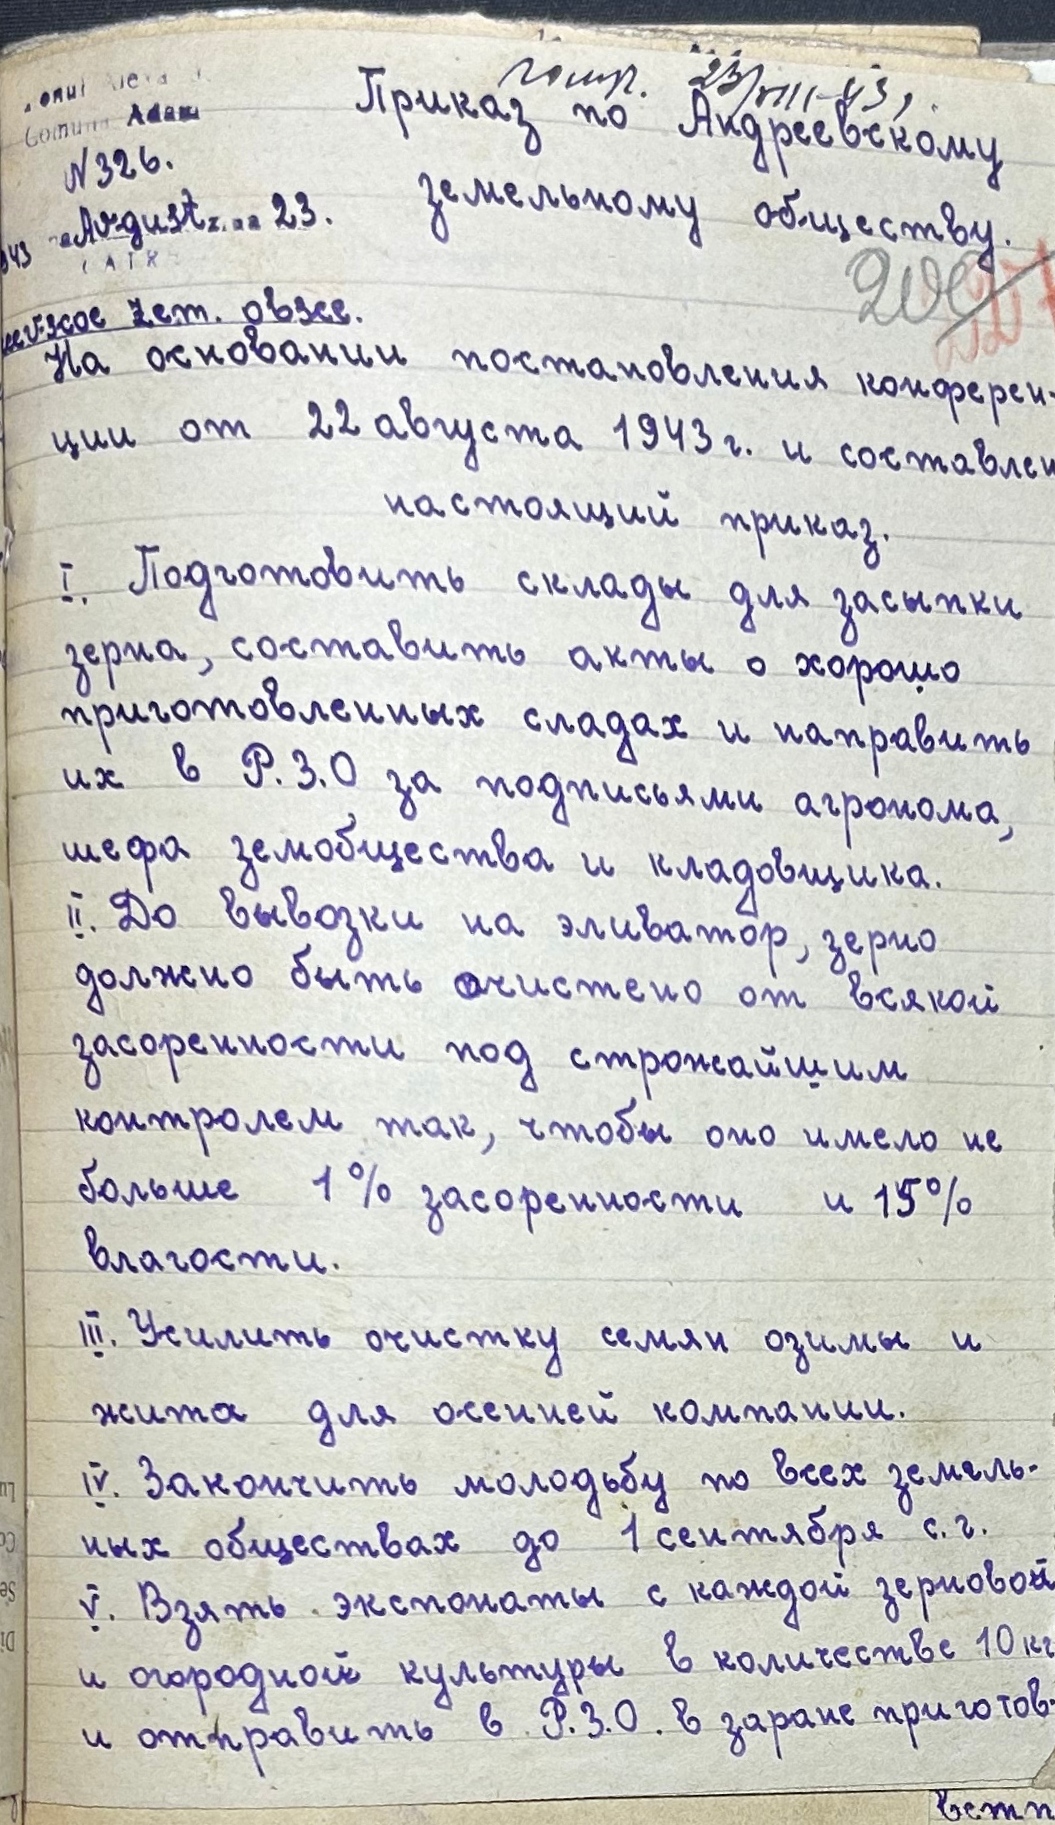 23/VIII-43
Приказ по Андреевскому
земельному обществу.
Comuna Adam
N 326.
August 23.
943
200
зем. общ.
На основании постановления конферен-
ции от 22 августа 1943 г. и составлен
настоящий приказ.
I. Подготовить склады для засыпки
зерна, составить акты о хорошо
приготовленных сладах и направить
их в Р.З.О за подписьями агронома,
шефа земобщества и кладовщика.
II. До вывозки на эливатор, зерно
должно быть очистено от всякой
засоренности под строжайшим
контролем так, чтобы оно имело не
больше 1% засоренности и 15%
влагости.
III. Усилить очистку семян озимы и
жита для осенней компании.
IV. Закончить молодьбу по всех земель-
ных обществах до 1 сентября с.г.
V. Взять экспонаты с каждой зерновой
и огородной культуры в количестве 10 кг
и отправить в Р.З.О. в заране приготов-